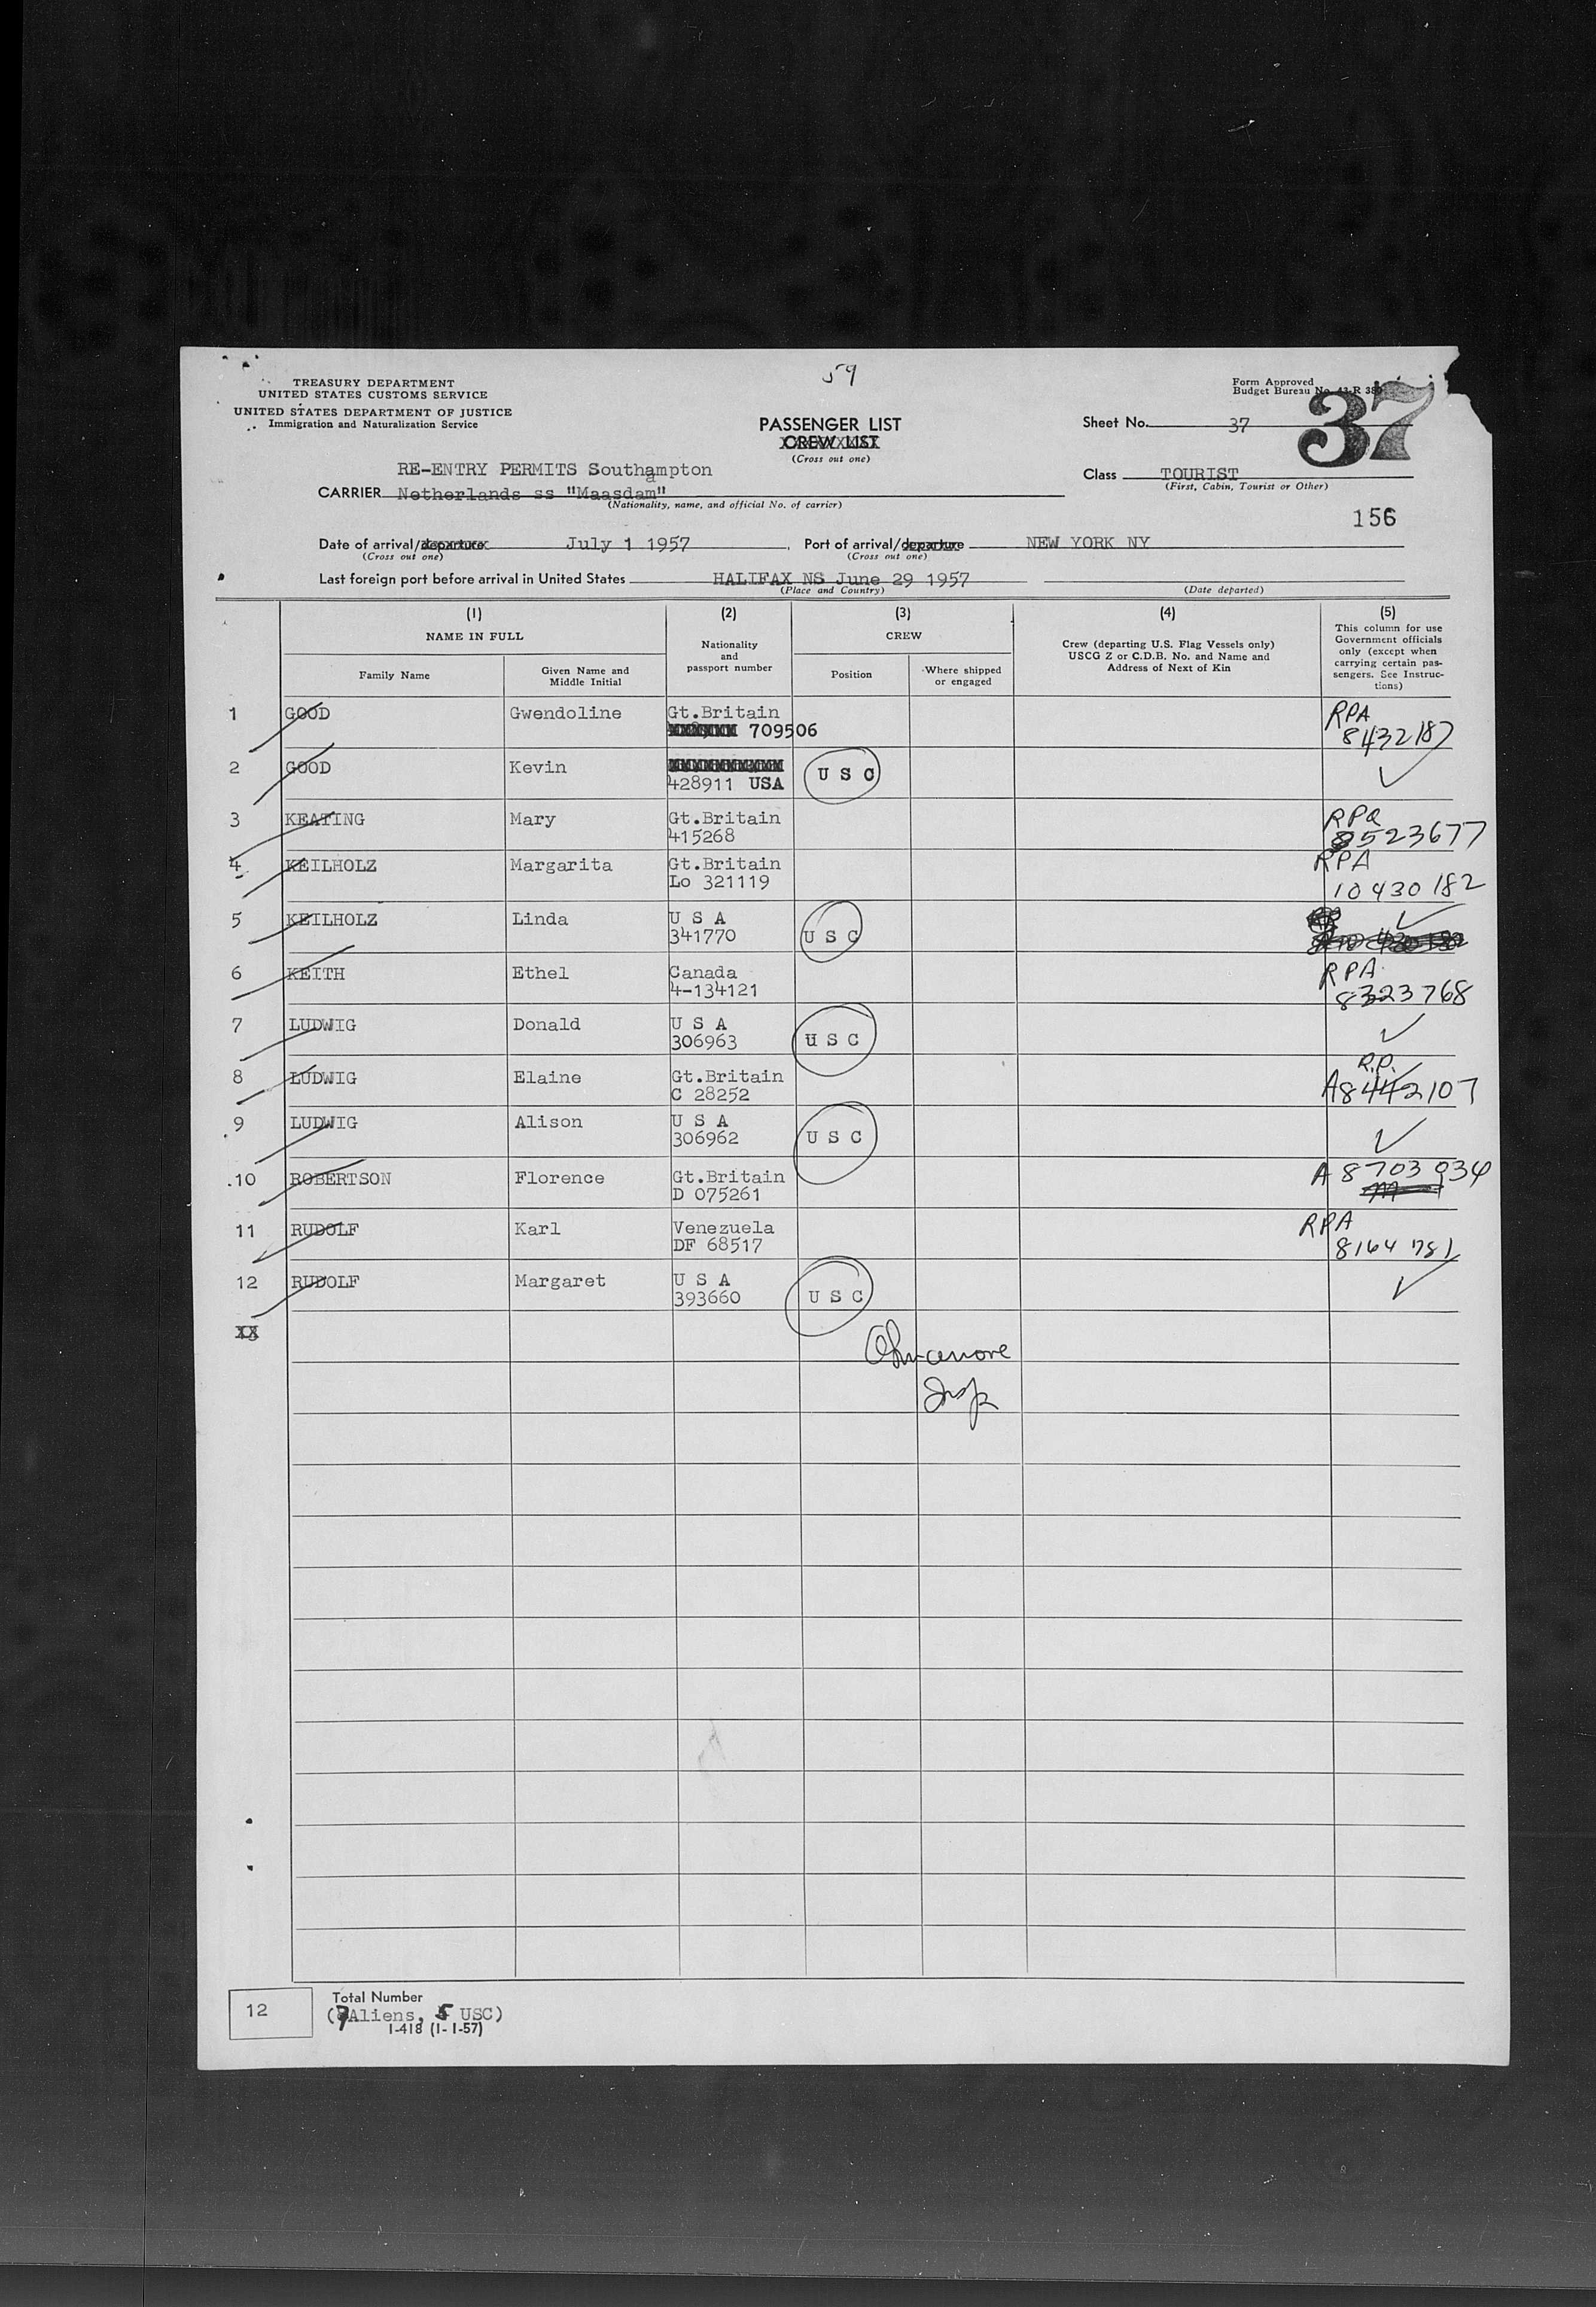 59
TREASURY DEPARTMENT
UNITED STATES CUSTOMS SERVICE
UNITED STATES DEPARTMENT OF JUSTICE
Immigration and Naturalization Service
PASSENGER LIST
CREW LIST
(Cross out one)
Form Approved
Budget Bureau No. 43-R
Sheet No. 37
37
RE-ENTRY PERMITS Southampton
CARRIER Netherlands ss "Maasdam"
(Nationality, name, and official No. of carrier)
Class TOURIST
(First, Cabin, Tourist or Other)
156
Date of arrival/departure July 1 1957, Port of arrival/departure NEW YORK NY
(Cross out one) (Cross out one)
Last foreign port before arrival in United States HALIFAX NS June 29 1957
(Place and Country) (Date departed)
(1) (2) (3) (4) (5)
NAME IN FULL
Family Name
Given Name and
Middle Initial
Nationality
and
passport number
CREW
Position
Where shipped
or engaged
Crew (departing U.S. Flag Vessels only)
USCG Z or C.D.B. No. and Name and
Address of Next of Kin
This column for use
Government officials
only (except when
carrying certain pas-
sengers. See Instruc-
tions)
1 GOOD Gwendoline Gt.Britain RPA
709506 8432187
2 GOOD Kevin
428911 USA U S C
3 KEATING Mary Gt.Britain RPA
415268 8523677
4 KEILHOLZ Margarita Gt.Britain RPA
Lo 321119 10 430 182
5 KEILHOLZ Linda U S A
341770 U S C
6 KEITH Ethel Canada RPA
4-134121 8323768
7 LUDWIG Donald U S A
306963 U S C
8 LUDWIG Elaine Gt.Britain R.P.
C 28252 A8442107
9 LUDWIG Alison U S A
306962 U S C
10 ROBERTSON Florence Gt.Britain A 8703 934
D 075261
11 RUDOLF Karl Venezuela RPA
DF 68517 8164 781
12 RUDOLF Margaret U S A
393660 U S C
Insp
12
Total Number
(7 Aliens, 5 USC)
I-418 (1-1-57)